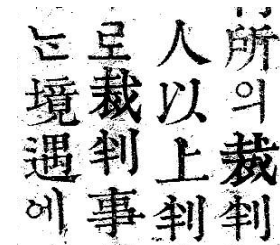 所의裁判
人以上判
로裁判事
는境遇에